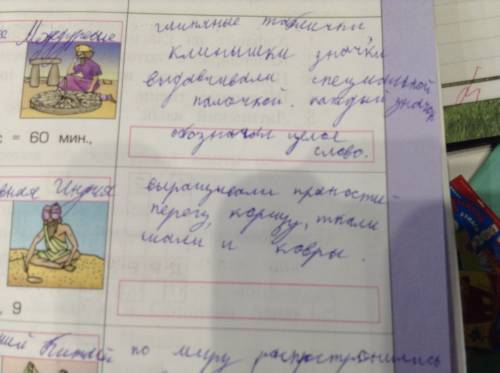 Междуречье
глиняные таблички
клинышки значки
выдавливали специальной
палочкой. каждый значок
обозначал целое
слово.
с = 60 мин.,
вная Индия
выращивали пряности -
перец, корицу, ткали
шали, и ковры.
, 9
ний Китай
по миру распространились